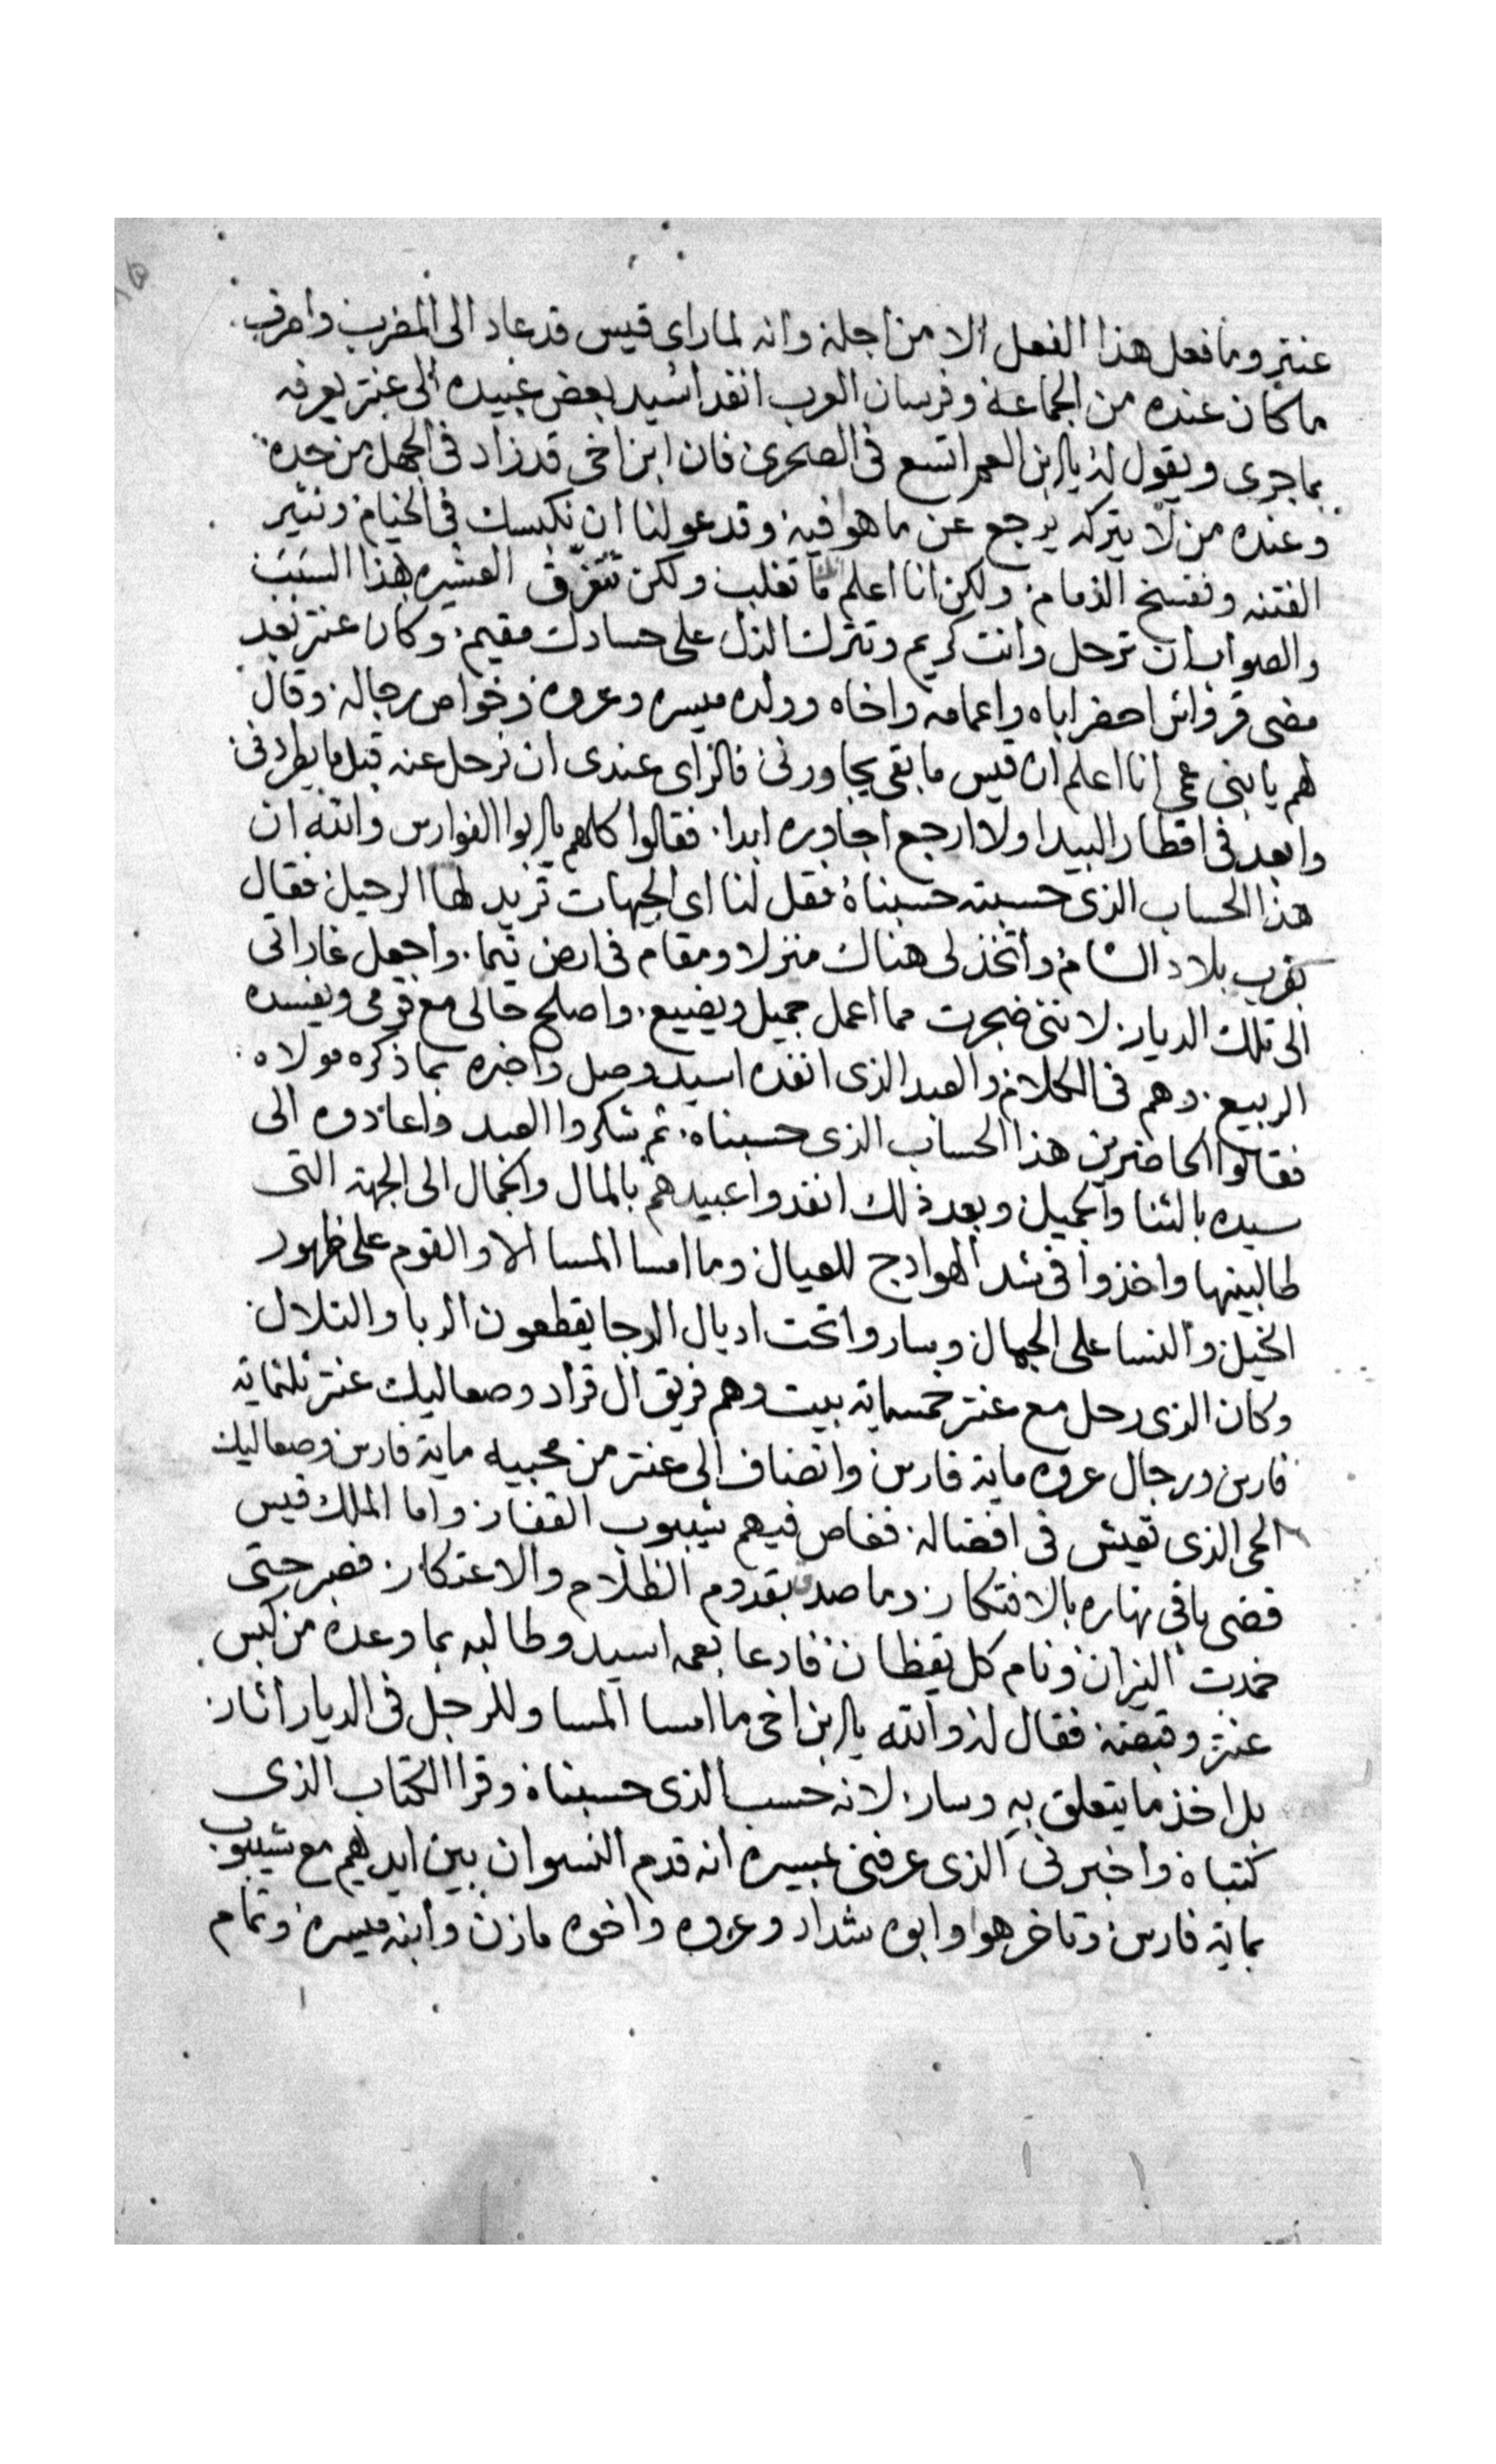 عنتر وما فعل هذا الفعل الا من اجله وانه لما راى قيس قد عاد الى المضرب واصرف
ما كان عنده من الجماعه وفرسان العرب انفد اسيد بعض عبيده الى عنتر يعرفه
بما جرى ويقول له يا ابن العم اتسع فى الصحرى فان ابن اخى قد زاد فى الجهل من حده
وعنده من لا يتركه يرجع عن ما هو فيه وقد عولنا ان نكبسك فى الخيام ونثير
الفتنه ونفسخ الذمام ولكن انا اعلم انك ما تغلب ولكن تتفرق العشيره بهذا السبب
والصواب ان ترحل وانت كريم وتترك الذل على حسادك مقيم وكان عنتر بعد
مضى قرواش احضر اباه واعمامه واخاه وولده ميسره وعروه وخواص رجاله وقال
لهم يا بنى عمى انا اعلم ان قيس ما بقى يجاورنى فالراى عندى ان نرحل عنه قبل ما يطردنى
وابعد فى اقطار البيدا ولا ارجع اجاوره ابدا فقالوا كلهم يا ابوا الفوارس والله ان
هذا الحساب الذى حسبته حسبناه فقل لنا اى الجهات تريد لها الرحيل فقال
بقرب بلاد الشام واتخذ لى هناك منزلا ومقام فى ارض تيما واجعل غاراتى
الى تلك الديار لاننى ضجرت مما اعمل جميل ويضيع واصلح حالى مع قومى ويفسده
الربيع وهم فى الكلام والعبد الذى انفده اسيد وصل واخبره بما ذكره مولاه
فقالوا الحاضرين هذا الحساب الذى حسبناه ثم شكروا العبد واعادوه الى
سيده بالثنا والجميل وبعد ذلك انفدوا عبيدهم بالمال والجمال الى الجهة التى
طالبينها واخذوا فى شد الهوادج للعيال وما امسا المسا الا والقوم على ظهور
الخيل والنسا على الجمال وساروا تحت اديال الدجا يقطعون الربا والتلال
وكان الذى رحل مع عنتر خمسماية بيت وهم فريق ال قراد وصعاليك عنتر ثلثماية
فارس ورجال عروه ماية فارس وانضاف الى عنتر من محبيه ماية فارس وصعاليك
الحى الذى تعيش فى افضاله فغاص فيهم شيبوب القفار واما الملك قيس
قضى باقى نهاره بالافتكار وما صدق بقدوم الظلام والاعتكار فصبر حتى
خمدت النيران ونام كل يقظان فادعا بعمه اسيد وطالبه بما وعده من كبس
عنتر وقبضه فقال له والله يا ابن اخى ما امسا المسا وللرجل فى الديار اثار
بل اخذ ما يتعلق به وسار لانه حسب الذى حسبناه وقرا الكتاب الذى
كتبناه واخبرنى الذى عرفنى بمسيره انه قدم النسوان بين ايديهم مع شيبوب
بماية فارس وتاخر هوا وابوه شداد وعروه واخوه مازن وابنه ميسره وتمام